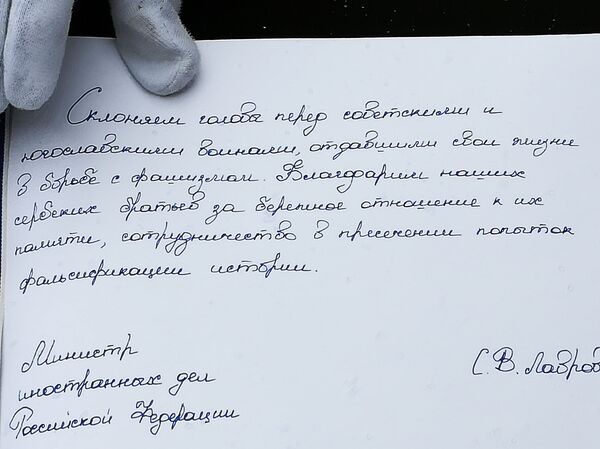 Склоняем головы перед советскими и
югославскими воинами, отдавшими свои жизни
в борьбе с фашизмом. Благодарим наших
сербских братьев за бережное отношение к их
памяти, сотрудничество в пресечении попыток
фальсификации истории.
Министр
иностранных дел
Российской Федерации
С.В. Лавров